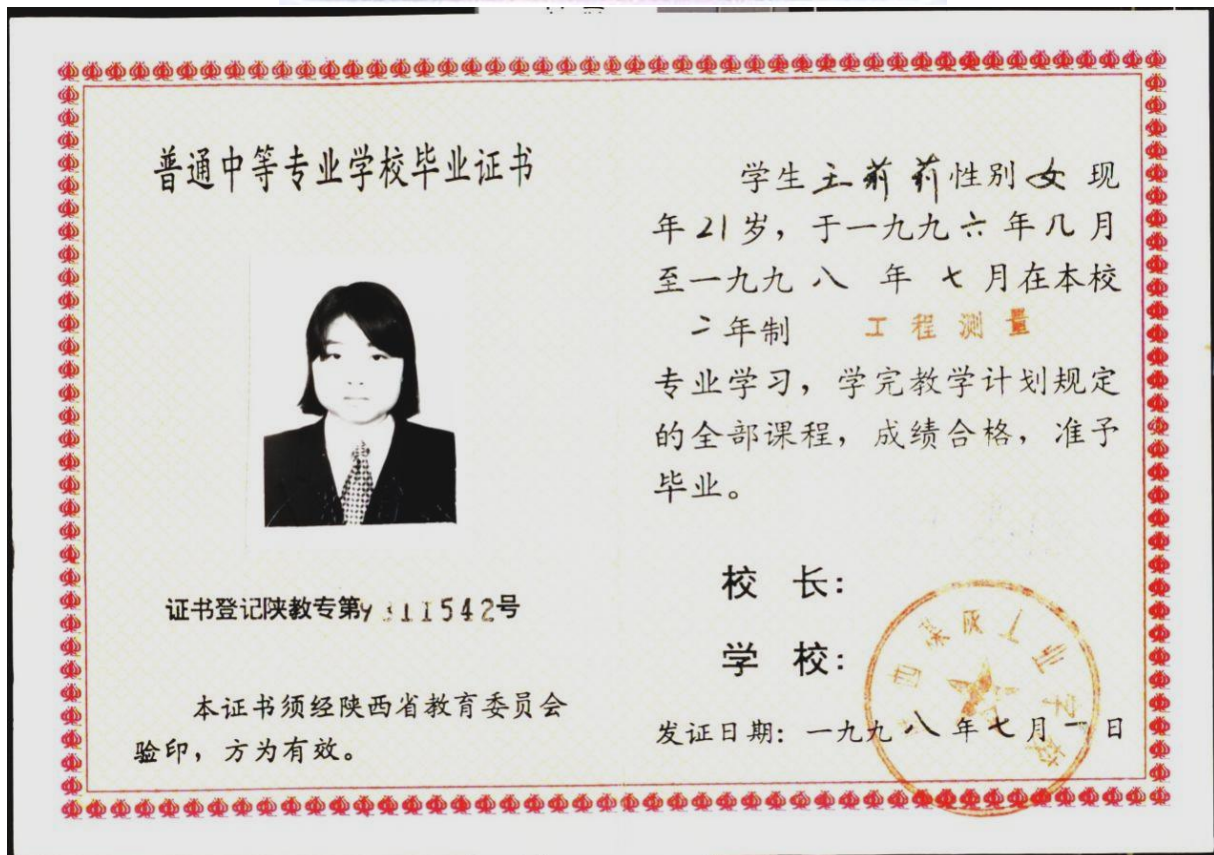 普通中等专业学校毕业证书
证书登记陕教专第9311542号
本证书须经陕西省教育委员会
验印，方为有效。
学生王莉莉性别女 现
年21岁，于一九九六年九月
至一九九八年七月在本校
二年制 工程测量
专业学习，学完教学计划规定
的全部课程，成绩合格，准予
毕业。
校 长：
学 校：
发证日期：一九九八年七月一日